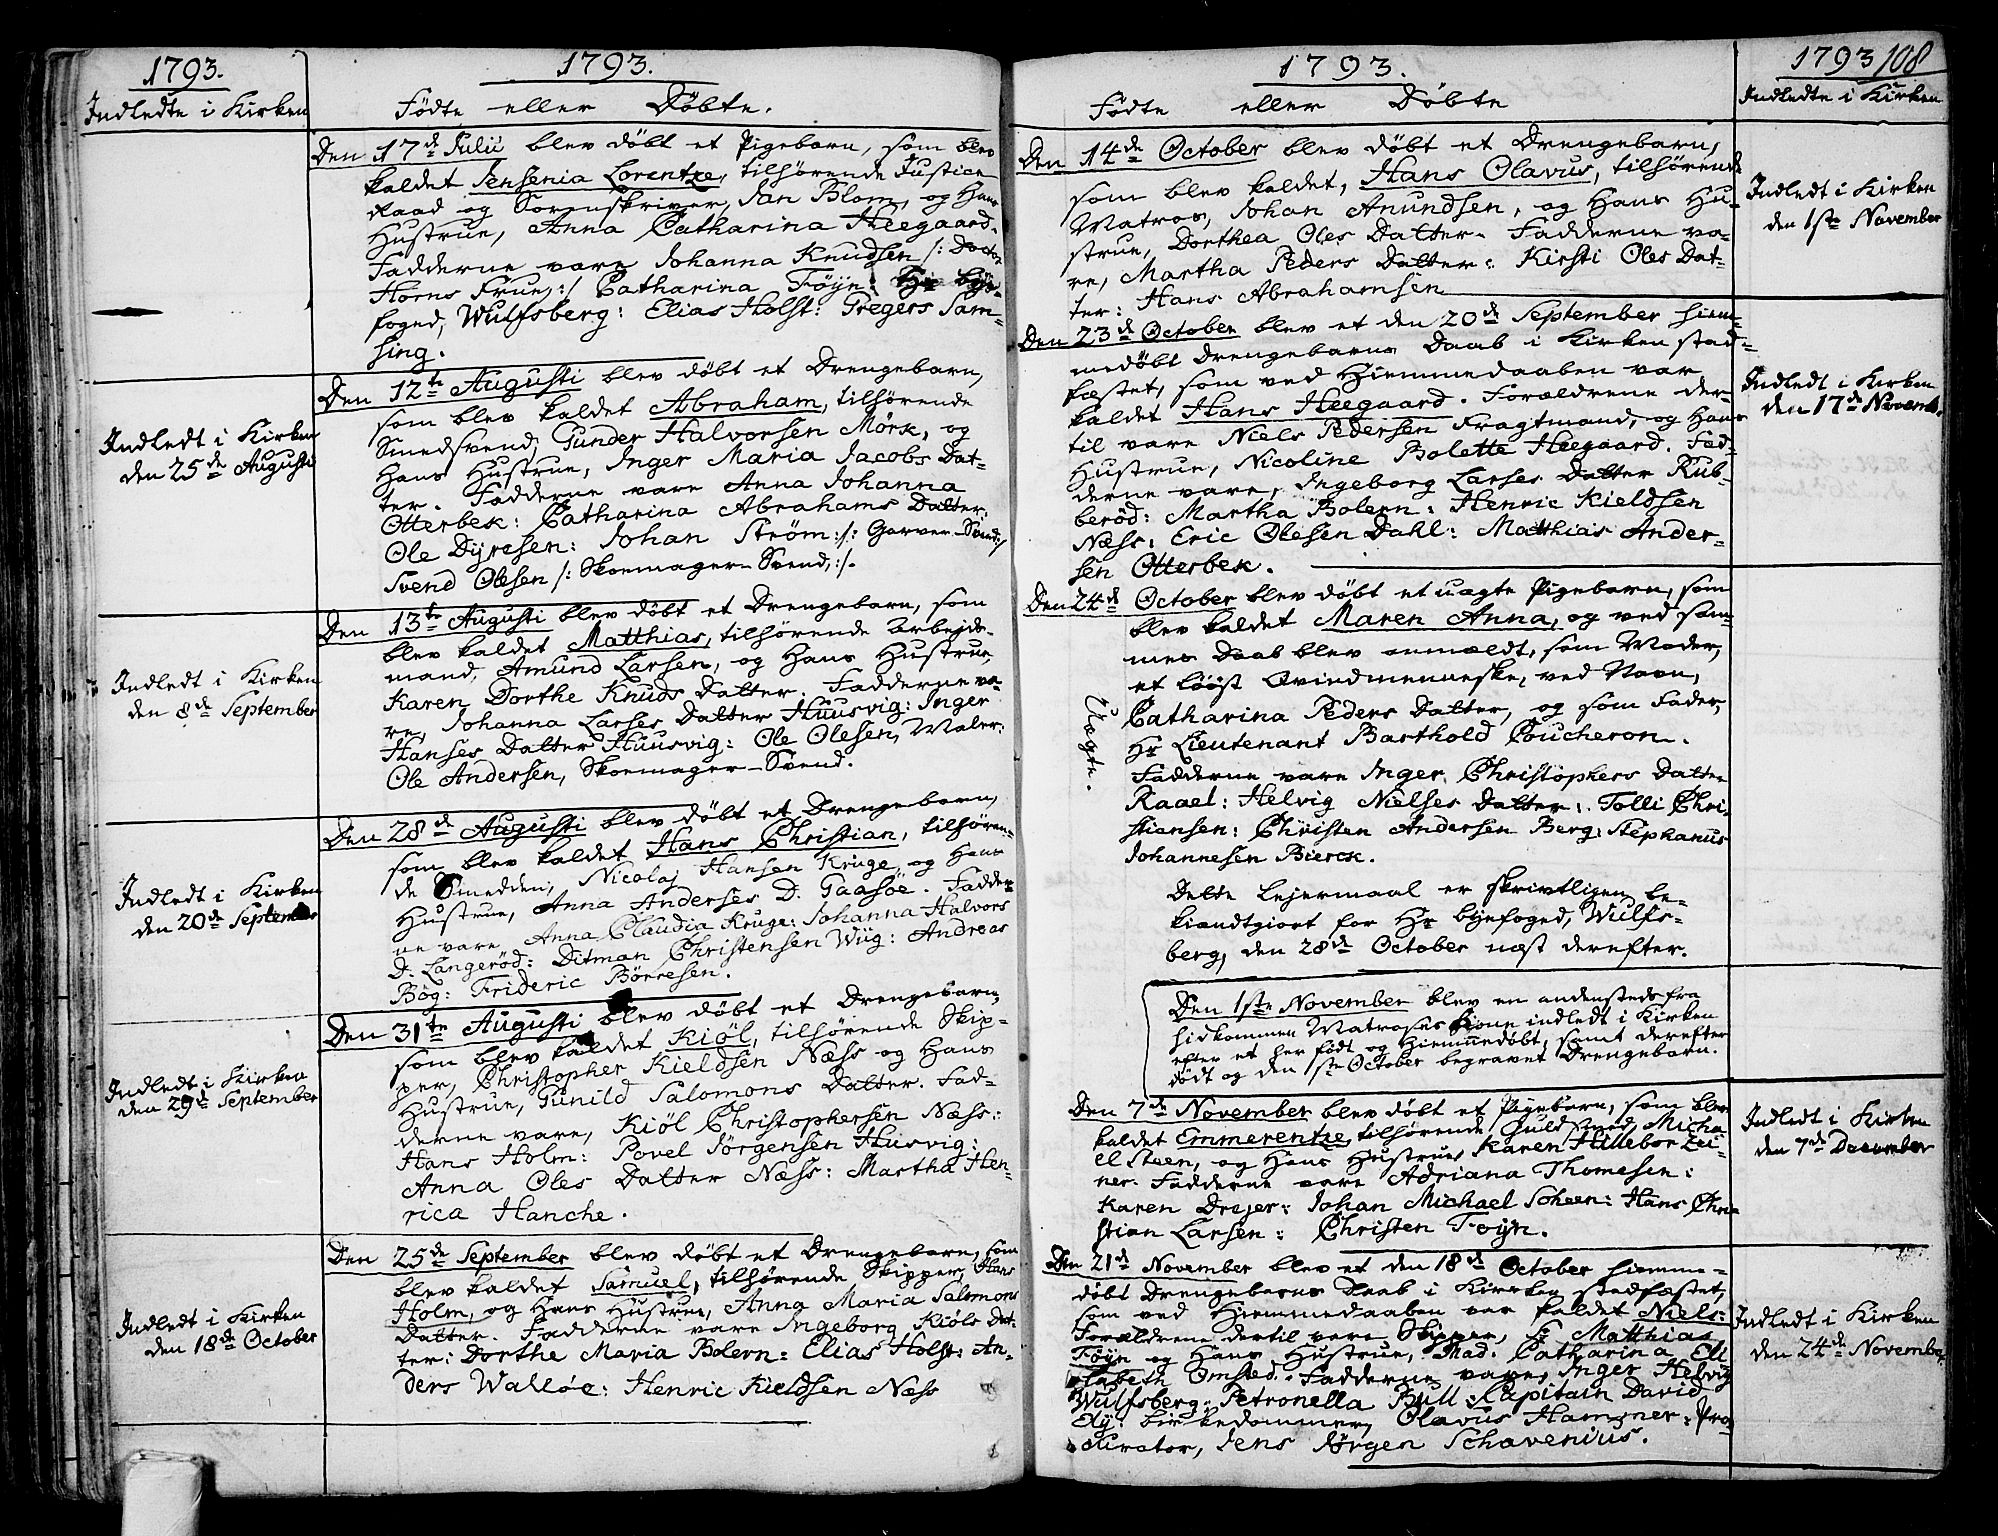 1793.
Indledte i Kirken
1793.
Fødte eller Døbte.
Den 17de Julii blev døbt et Pigebarn, som blev
kaldet Jensenia Lorentze, tilhørende Justice
Raad og Sorenskriver, Jan Blom, og Hans
Hustrue, Anna Catharina Heegaard.
Fadderne vare Johanna Knudsen /: Doctor
Horns Frue, :/ Catharina Føyn: Hr bye-
foged, Wulfsberg: Elias Holst: Gregers Sam-
sing.
Den 12te Augusti blev døbt et Drengebarn,
som blev kaldet Abraham, tilhørende
Smedsvend, Gunder Halvorsen Mørk, og
Hans Hustrue, Inger Maria Jacobs Dat-
ter. Fadderne vare Anna Johanna
Otterbek: Catharina Abrahams Datter:
Ole Dyresen: Johan Strøm :/: Garver-Svend :/
Svend Olesen /: Skoemager-Svend, :/.
Indledt i Kirken
den 25de Augusti
Den 13te Augusti blev døbt et Drengebarn, som
blev kaldet Matthias, tilhørende Arbejds-
mand, Amund Larsen, og Hans Hustrue,
Karen Dorthe Knuds Datter. Fadderne va-
re, Johanna Larses Datter Huusvig: Inger
Hanses Datter Huusvig: Ole Olesen, Maler:
Ole Andersen, Skoemager-Svend.
Indledt i Kirken
den 8de September
Den 28de Augusti blev døbt et Drengebarn,
som blev kaldet Hans Christian, tilhøren-
de Smedden, Nicolaj Hansen Kruge, og Hans
Hustrue, Anna Anderses D. Gaasøe. Fadder-
ne vare, Anna Claudia Kruge: Johanna Halvors
D. Langerød: Ditman Christensen Wüg: Andreas
Bög: Frideric Börresen.
Indledt i Kirken
den 20de September
Den 31te Augusti blev døbt et Drengebarn,
som blev kaldet Kiöl, tilhørende Skip-
per, Christopher Kieldsen Næss og Hans
Hustrue, Gunild Salomons Datter. Fad-
derne vare, Kiöl Christophersen Næss:
Hans Holm: Povel Jörgensen Husvig:
Anna Oles Datter Næss: Martha Hen-
rica Hanche.
Indledt i Kirken
den 29de September
Den 25de September blev døbt et Drengebarn, som
blev kaldet Samuel, tilhørende Skipper, Hans
Holm, og Hans Hustrue, Anna Maria Salomons
Datter. Fadderne vare Ingeborg Kiöls Dat-
ter: Dorthe Maria Bolern: Elias Holst: An-
ders Walløe: Henric Kieldsen Næss
Indledt i Kirken
den 18de October
1793.
Fødte eller Døbte
1793 108
Indledte i Kirken
Den 14de October blev døbt et Drengebarn,
som blev kaldet, Hans Olavus, tilhørende
Matros, Johan Anundsen, og Hans Hu-
strue, Dorthea Oles Datter. Fadderne va-
re, Martha Peders Datter: Kirsti Oles Dat-
ter: Hans Abrahamsen
Indledt i Kirken
den 1ste November
Den 23de October blev et den 20de September hiem-
medøbt Drengebarns Daab i Kirken stad-
fæstet, som ved Hiemmedaaben var
kaldet Hans Heegaard. Forældrene der-
til vare Niels Pedersen Fragtmand, og Hans
Hustrue, Nicoline Bolette Heegaard. Fad-
derne vare, Ingeborg Larses Datter Rub-
beröd: Martha Bolern: Henric Kieldsen
Næss: Eric Olesen Dahl: Matthias Ander-
sen Otterbek.
Indledt i Kirken
den 17de Novemb.
Den 24de October blev døbt et uægte Pigebarn, som
blev kaldet Maren Anna, og ved sam-
mes Daab blev anmældt, som Moder,
et løøst Qvindmenneske, ved Navn,
Catharina Peders Datter, og som Fader,
Hr Lieutenant Barthold Coucheron.
Fadderne vare Inger Christophers Datter
Raael: Helvig Nielses Datter: Tolli Chri-
stiansen: Christen Andersen Berg: Stephanus
Johannesen Bierck.
Uægte.
Dette Lejermaal er skrivtligen be-
kiandtgiort for Hr byefoged, Wulfs-
berg, den 28de October næst derefter.
Den 1ste November blev en andenstedsfra
hidkommen Matroses Kone indledt i Kirken
efter et her født og Hiemmedøbt, samt derefter
dødt og den 1ste October begravet Drengebarn.
Den 7de November blev døbt et Pigebarn, som blev
kaldet Emmerentze, tilhørende Guldsmed Micha
el Steen, og Hans Hustrue Karen Hillebor Zei-
ner. Fadderne vare Adriana Thomesen:
Karen Dreyer: Johan Michael Scheen: Hans Chri-
stian Larsen: Christen Foyn.
Indledt i Kirken
den 7de December
Den 21de November blev et den 18de October hiemme-
døbt Drengebarns Daab i Kirken stadfæstet,
som ved Hiemmedaaben var kaldet Niels:
Forældrene dertil vare Skipper, Matthias
Føyn og Hans Hustrue, Mad. Catharina Eli
sabeth Omsted. Fadderne vare, Inger Helvig
Wulfsberg: Petronella Bull: Capitain David
Birkedommer, Olavus Hammer: Pro-
curator, Jens Jørgen Schavenius.
Indledt i Kirken
den 24de November